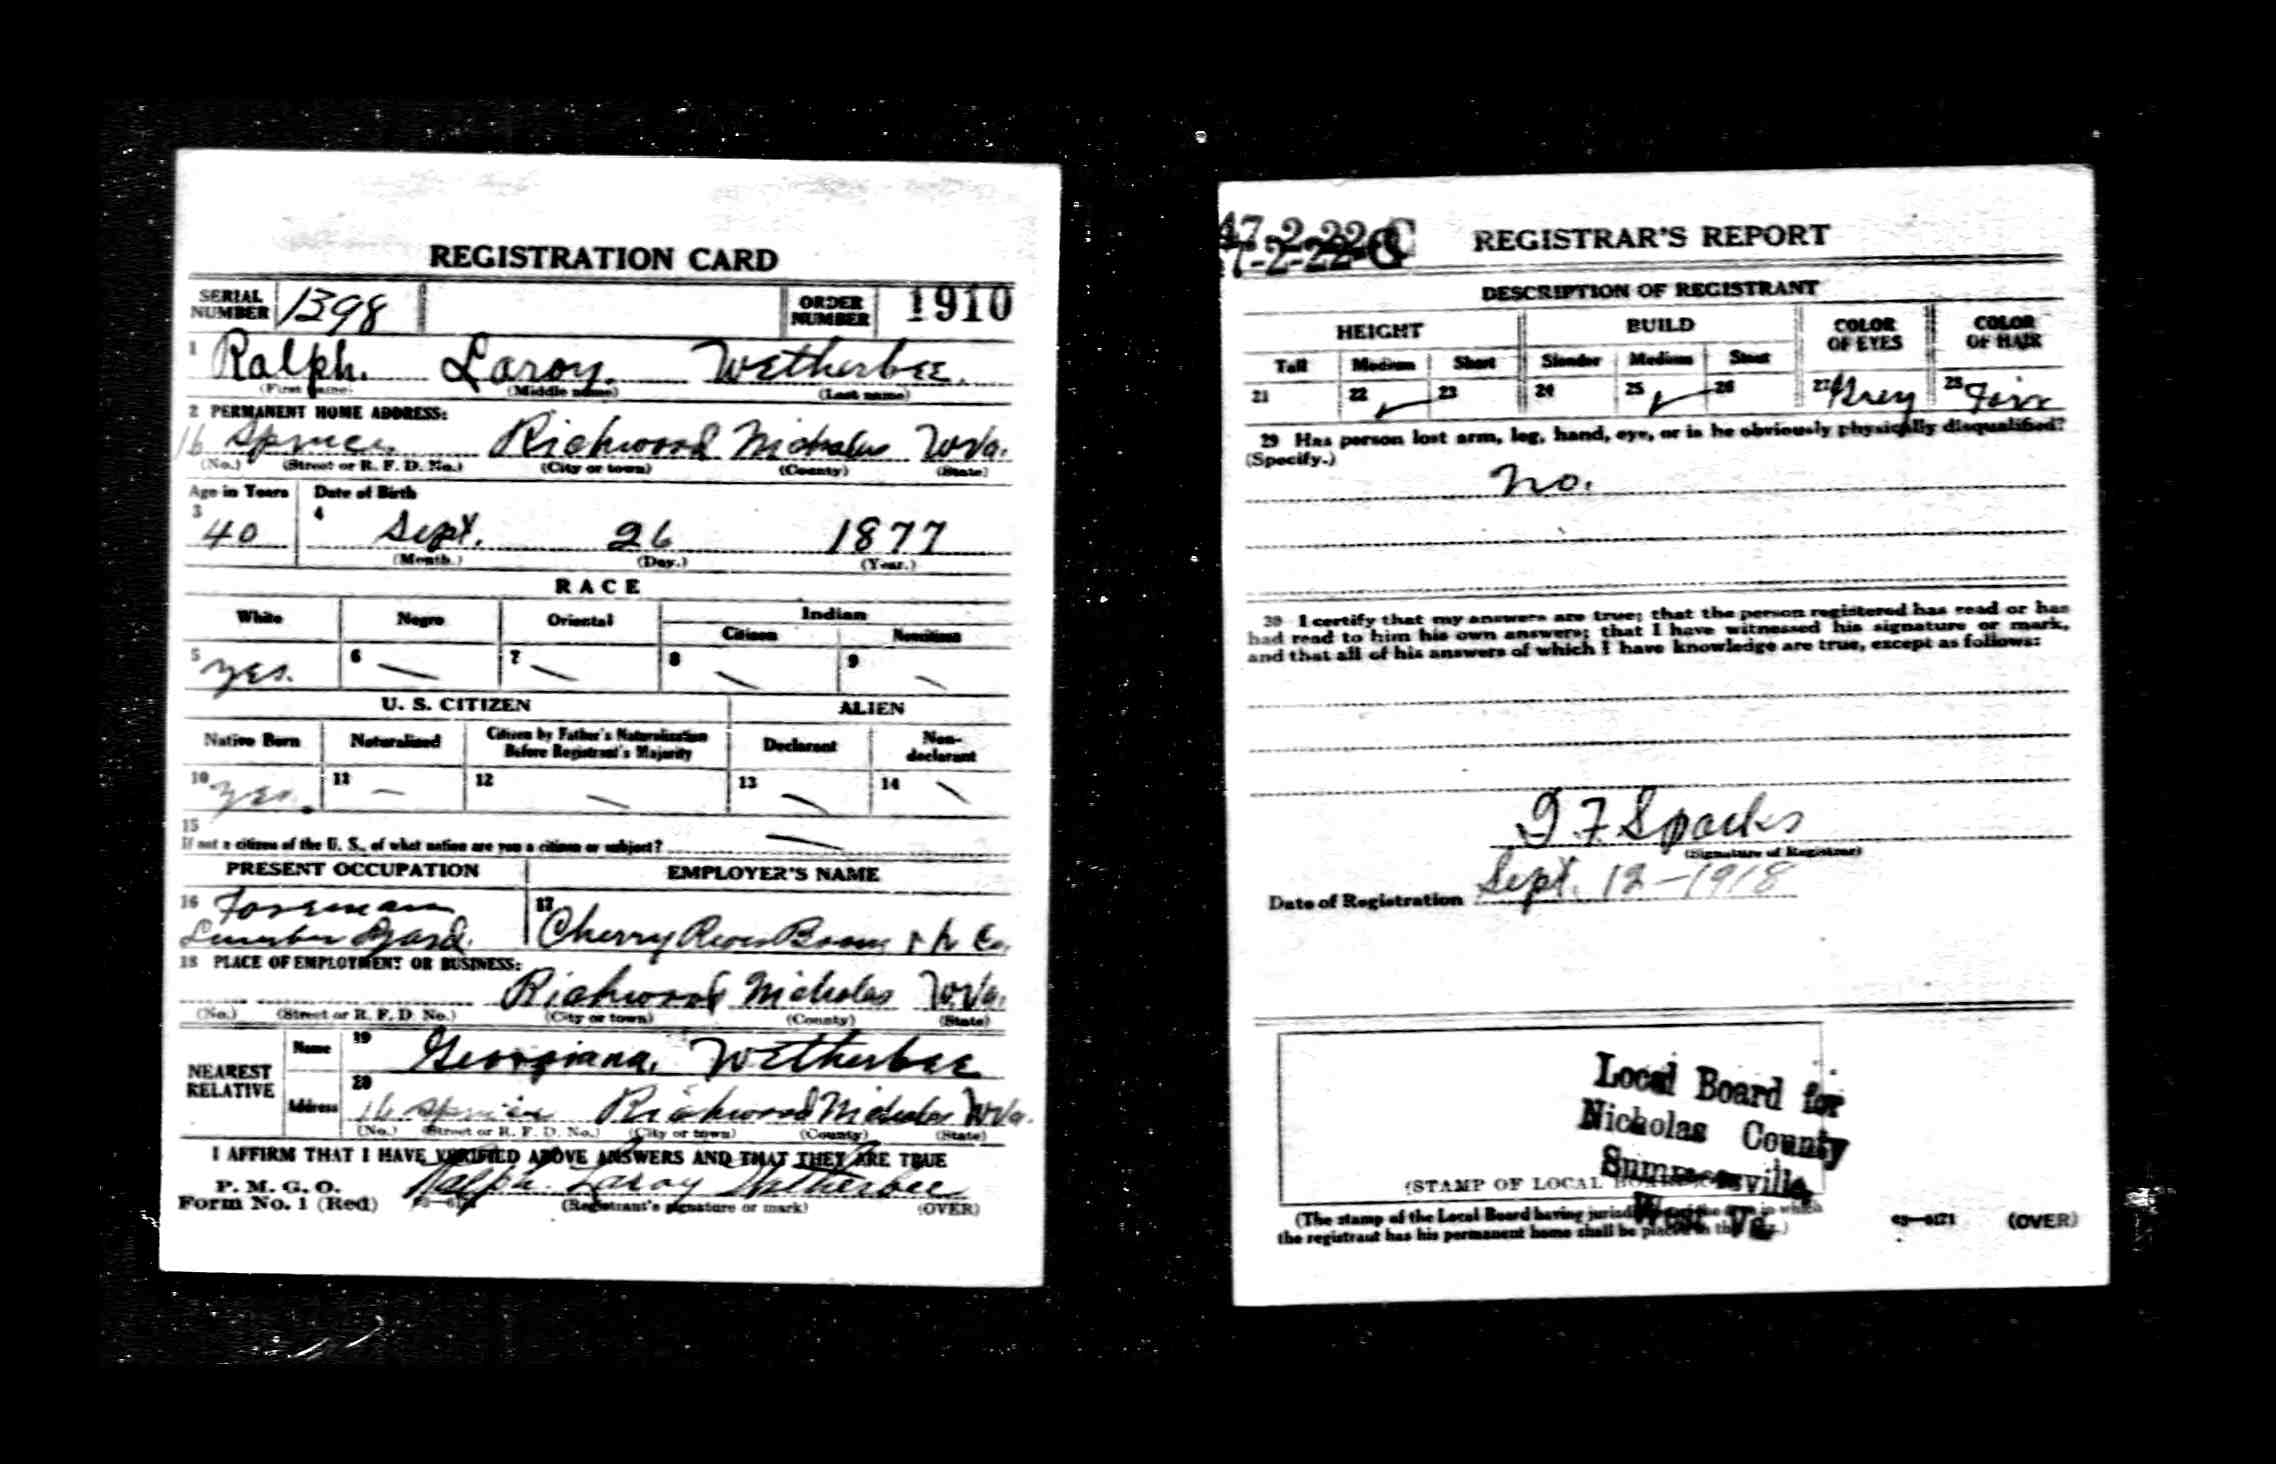 REGISTRATION CARD
SERIAL NUMBER 1398 ORDER NUMBER 1910
1 Ralph. Laroy. Wetherbee.
(First name) (Middle name) (Last name)
2 PERMANENT HOME ADDRESS:
16 Spruce Richwood Nicholas W.Va.
(No.) (Street or R. F. D. No.) (City or town) (County) (State)
Age in Years Date of Birth
3 40 4 Sept. 26 1877
(Month.) (Day.) (Year.)
RACE
White Negro Oriental Indian
Citizen Noncitizen
5 Yes. 6 — 7 — 8 — 9 —
U. S. CITIZEN ALIEN
Native Born Naturalized Citizen by Father's Naturalization Before Registrant's Majority Declarant Non-declarant
10 Yes. 11 — 12 — 13 — 14 —
15
If not a citizen of the U. S., of what nation are you a citizen or subject? —
PRESENT OCCUPATION EMPLOYER'S NAME
16 Foreman Lumber Yard. 17 Cherry River Boom & L Co.
18 PLACE OF EMPLOYMENT OR BUSINESS:
Richwood Nicholas W.Va.
(No.) (Street or R. F. D. No.) (City or town) (County) (State)
NEAREST RELATIVE
Name 19 Georgiana. Wetherbee
Address 20 16 Spruce Richwood Nicholas W.Va.
(No.) (Street or R. F. D. No.) (City or town) (County) (State)
I AFFIRM THAT I HAVE VERIFIED ABOVE ANSWERS AND THAT THEY ARE TRUE
P. M. G. O.
Form No. 1 (Red) Ralph. Laroy Wetherbee
(Registrant's signature or mark) (OVER)
47-2-22-C
REGISTRAR'S REPORT
DESCRIPTION OF REGISTRANT
HEIGHT BUILD COLOR OF EYES COLOR OF HAIR
Tall Medium Short Slender Medium Stout
21 22 ✓ 23 24 25 ✓ 26 27 Grey 28
29 Has person lost arm, leg, hand, eye, or is he obviously physically disqualified?
(Specify.)
No.
30 I certify that my answers are true; that the person registered has read or has
had read to him his own answers; that I have witnessed his signature or mark,
and that all of his answers of which I have knowledge are true, except as follows:
Sparks
(Signature of Registrar)
Date of Registration Sept. 12-1918
Local Board for
Nicholas County
Summersville,
West Va.
(STAMP OF LOCAL
(The stamp of the Local Board having the area in which
the registrant has his permanent home shall be placed in
(OVER)